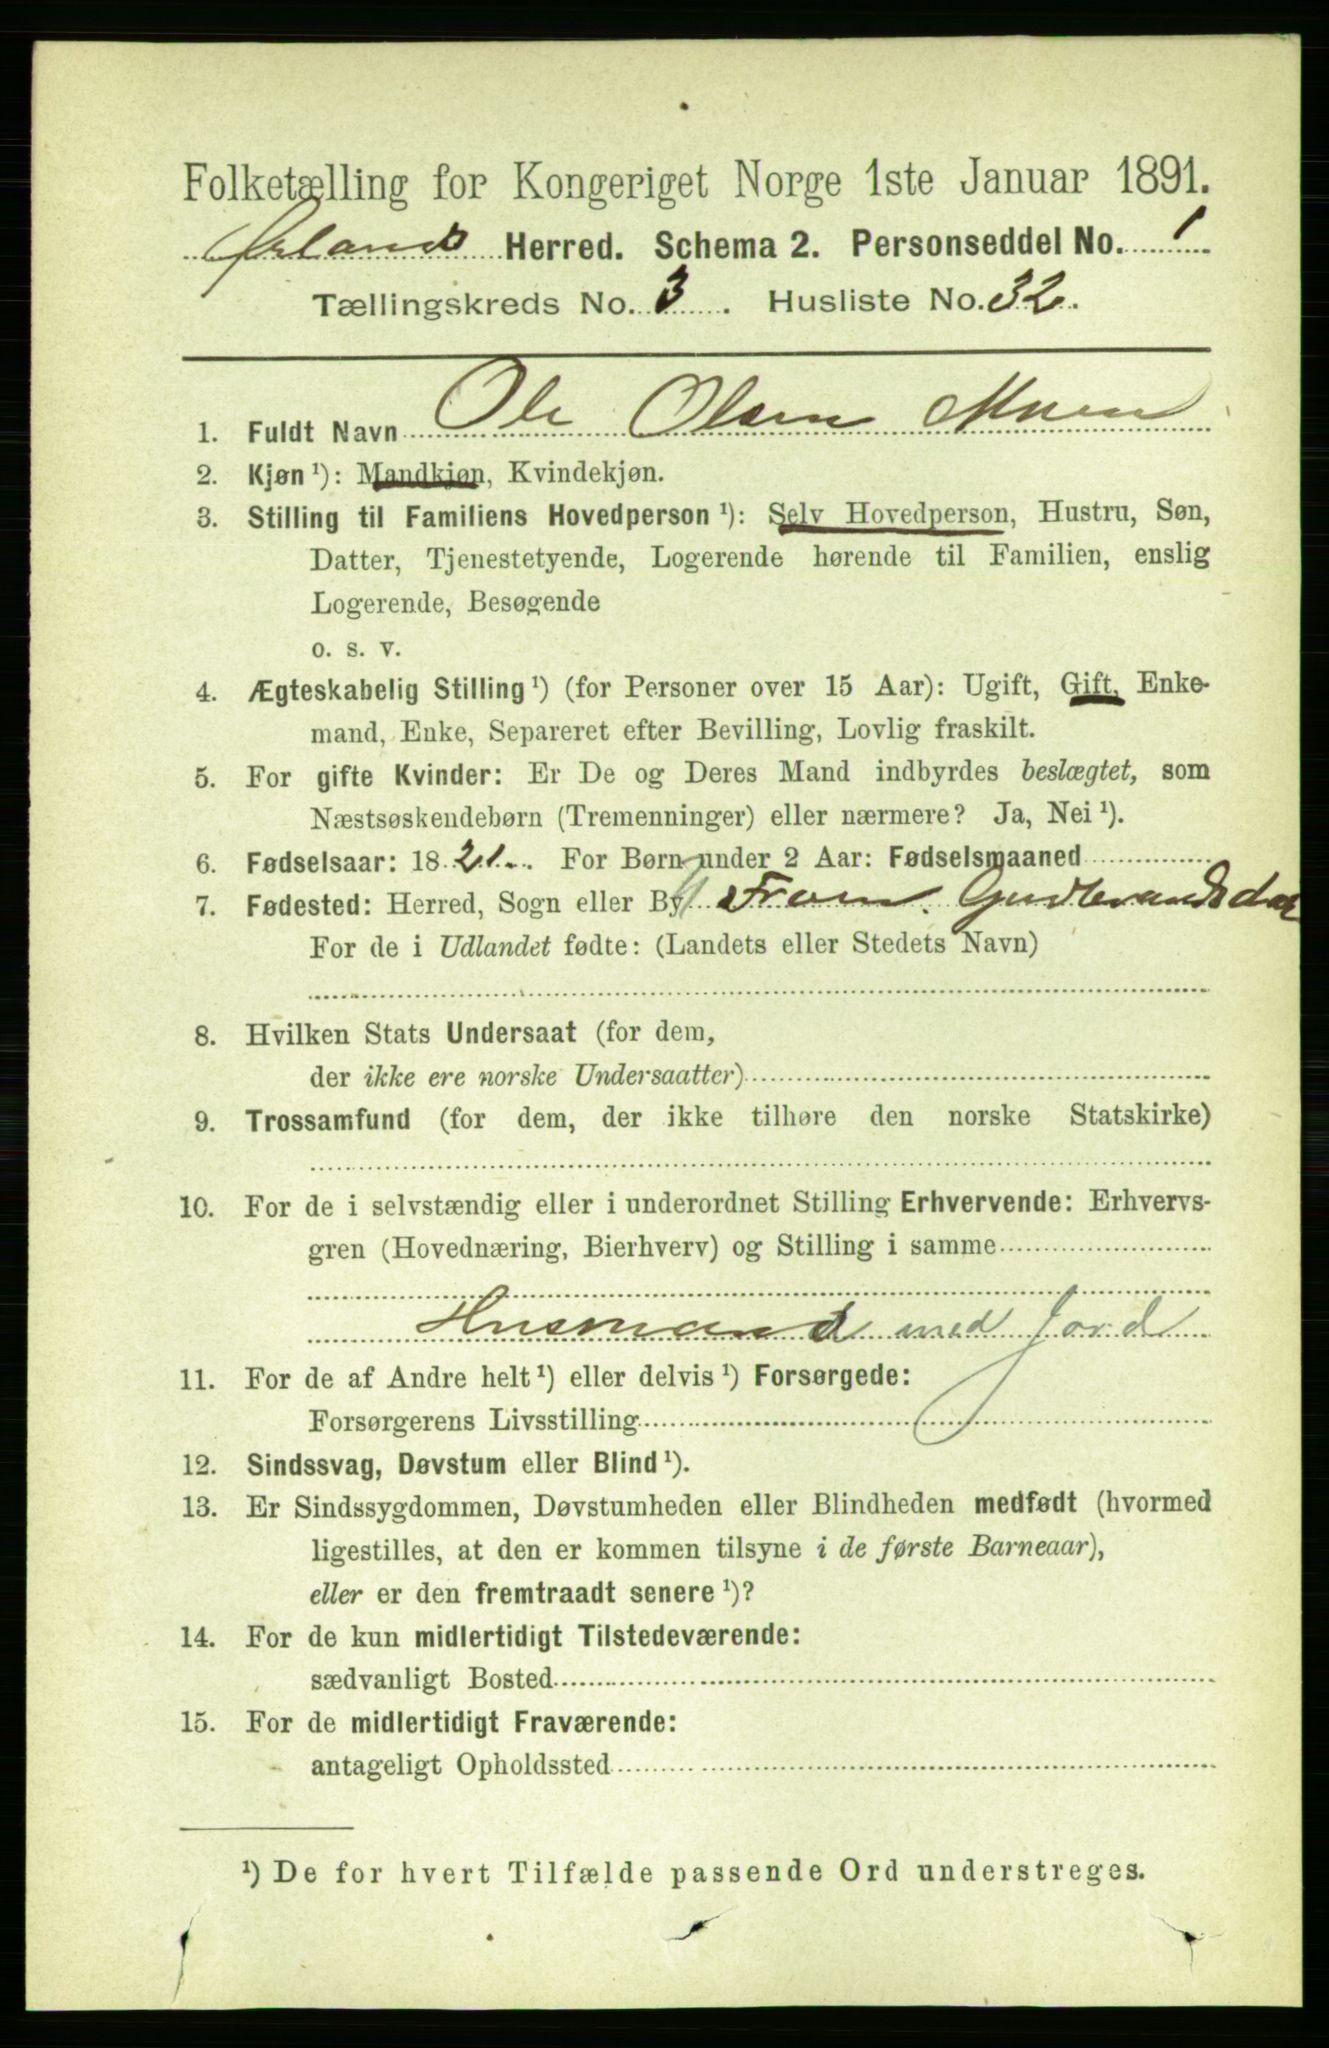 Folketælling for Kongeriget Norge 1ste Januar 1891.
Ørlands Herred. Schema 2. Personseddel No. 1
Tællingskreds No. 3. Husliste No. 32.
1. Fuldt Navn Ole Olsen Moen
2. Kjøn¹): Mandkjøn, Kvindekjøn.
3. Stilling til Familiens Hovedperson¹): Selv Hovedperson, Hustru, Søn,
Datter, Tjenestetyende, Logerende hørende til Familien, enslig
Logerende, Besøgende
o. s. v.
4. Ægteskabelig Stilling¹) (for Personer over 15 Aar): Ugift, Gift, Enke-
mand, Enke, Separeret efter Bevilling, Lovlig fraskilt.
5. For gifte Kvinder: Er De og Deres Mand indbyrdes beslægtet, som
Næstsøskendebørn (Tremenninger) eller nærmere? Ja, Nei¹).
6. Fødselsaar: 1821. For Børn under 2 Aar: Fødselsmaaned
7. Fødested: Herred, Sogn eller By Fron. Gudbrandsdal
For de i Udlandet fødte: (Landets eller Stedets Navn)
8. Hvilken Stats Undersaat (for dem,
der ikke ere norske Undersaatter)
9. Trossamfund (for dem, der ikke tilhøre den norske Statskirke)
10. For de i selvstændig eller i underordnet Stilling Erhvervende: Erhvervs-
gren (Hovednæring, Bierhverv) og Stilling i samme
Husmand med Jord
11. For de af Andre helt¹) eller delvis¹) Forsørgede:
Forsørgerens Livsstilling
12. Sindssvag, Døvstum eller Blind¹).
13. Er Sindssygdommen, Døvstumheden eller Blindheden medfødt (hvormed
ligestilles, at den er kommen tilsyne i de første Barneaar),
eller er den fremtraadt senere¹)?
14. For de kun midlertidigt Tilstedeværende:
sædvanligt Bosted
15. For de midlertidigt Fraværende:
antageligt Opholdssted
¹) De for hvert Tilfælde passende Ord understreges.